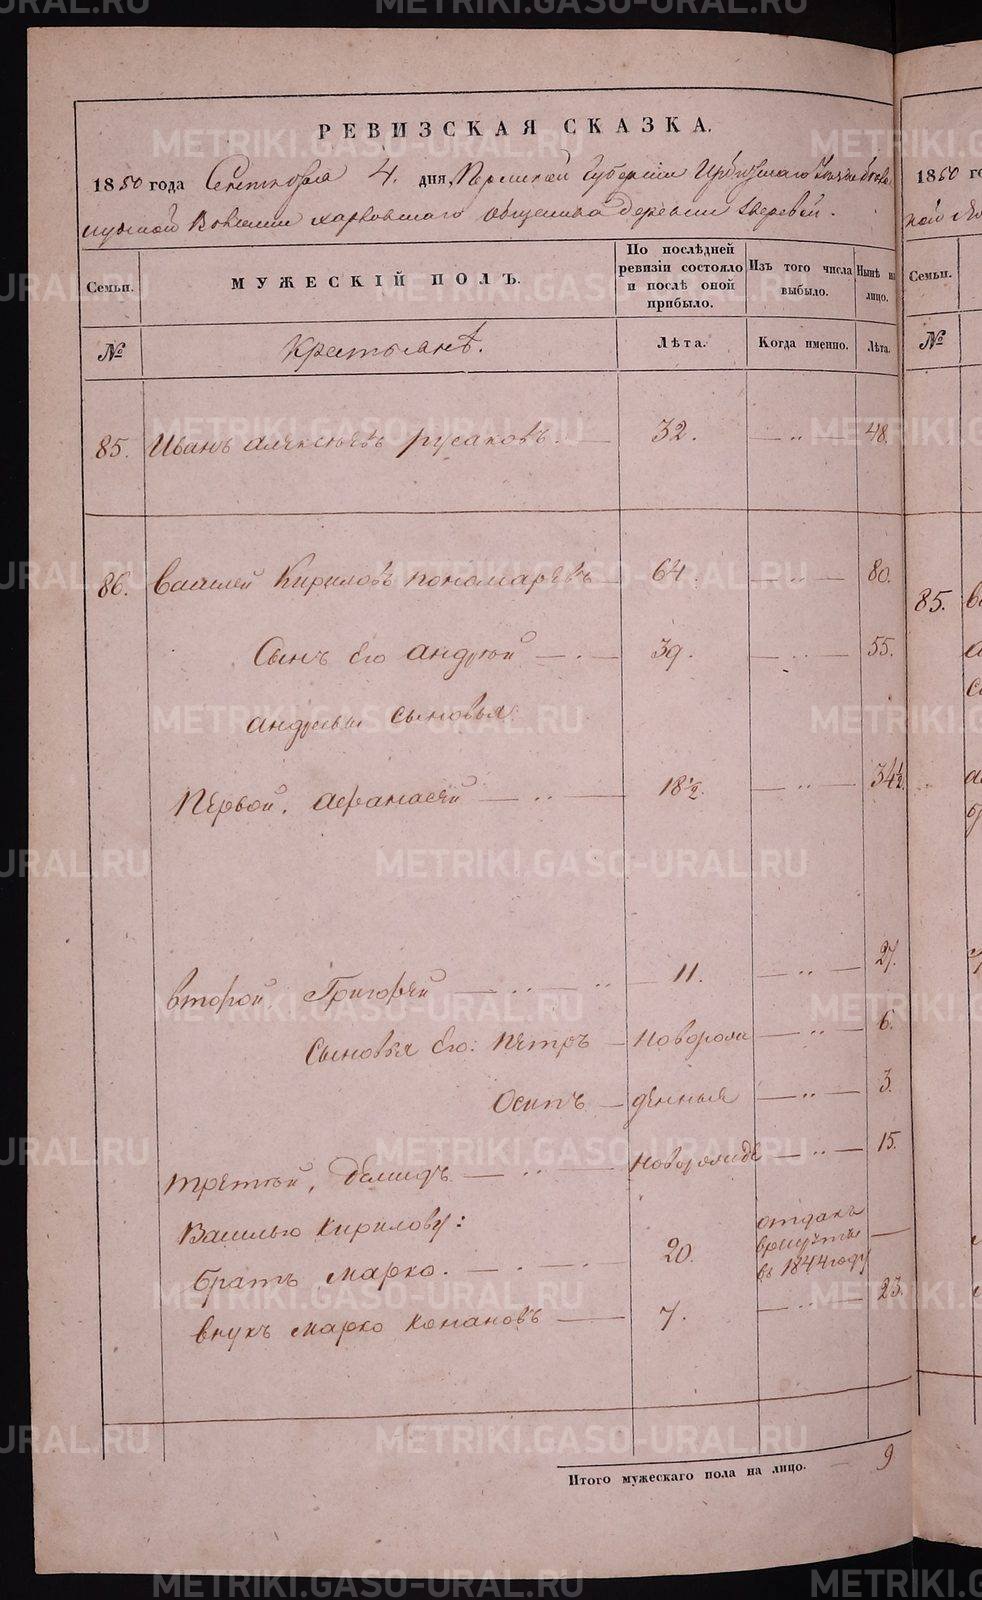 РЕВИЗСКАЯ СКАЗКА.
1850 года Сентября 4. дня, Пермской Губерніи Ирбитскаго
Волости Харловскаго общества деревни Зверевой.
Семьи.
МУЖЕСКІЙ ПОЛЪ.
По послѣдней ревизіи состояло и послѣ оной прибыло.
Изъ того числа выбыло.
Нынѣ на лицо.
№
Крестьянѣ.
Лѣта.
Когда именно.
Лѣта.
85. Иванъ Алексѣевъ Русаковъ. 32. — „ — 48.
86. Василей Кириловъ Пономаревъ 64. — „ — 80.
Сынъ Его Андрей — 39. — „ — 55.
Андреевы сыновья:
Первой, Афанасей — „ — 18 1/2. — „ — 34 1/2.
Второй Григорей — „ — 11. — „ — 27.
Сыновья Его: Петръ — новорож — „ — 6.
Осипъ — денныя — „ — 3.
Третей, Демидъ — „ — новорожде — „ — 15.
Василью Кирилову:
братъ Марко. — 20. отданъ в рекруты въ 1844 году —
внукъ Марко Кононовъ — 7. — „ — 23.
Итого мужескаго пола на лицо. 9
1850 го
Семьи.
№
85.
METRIKI.GASO-URAL.RU